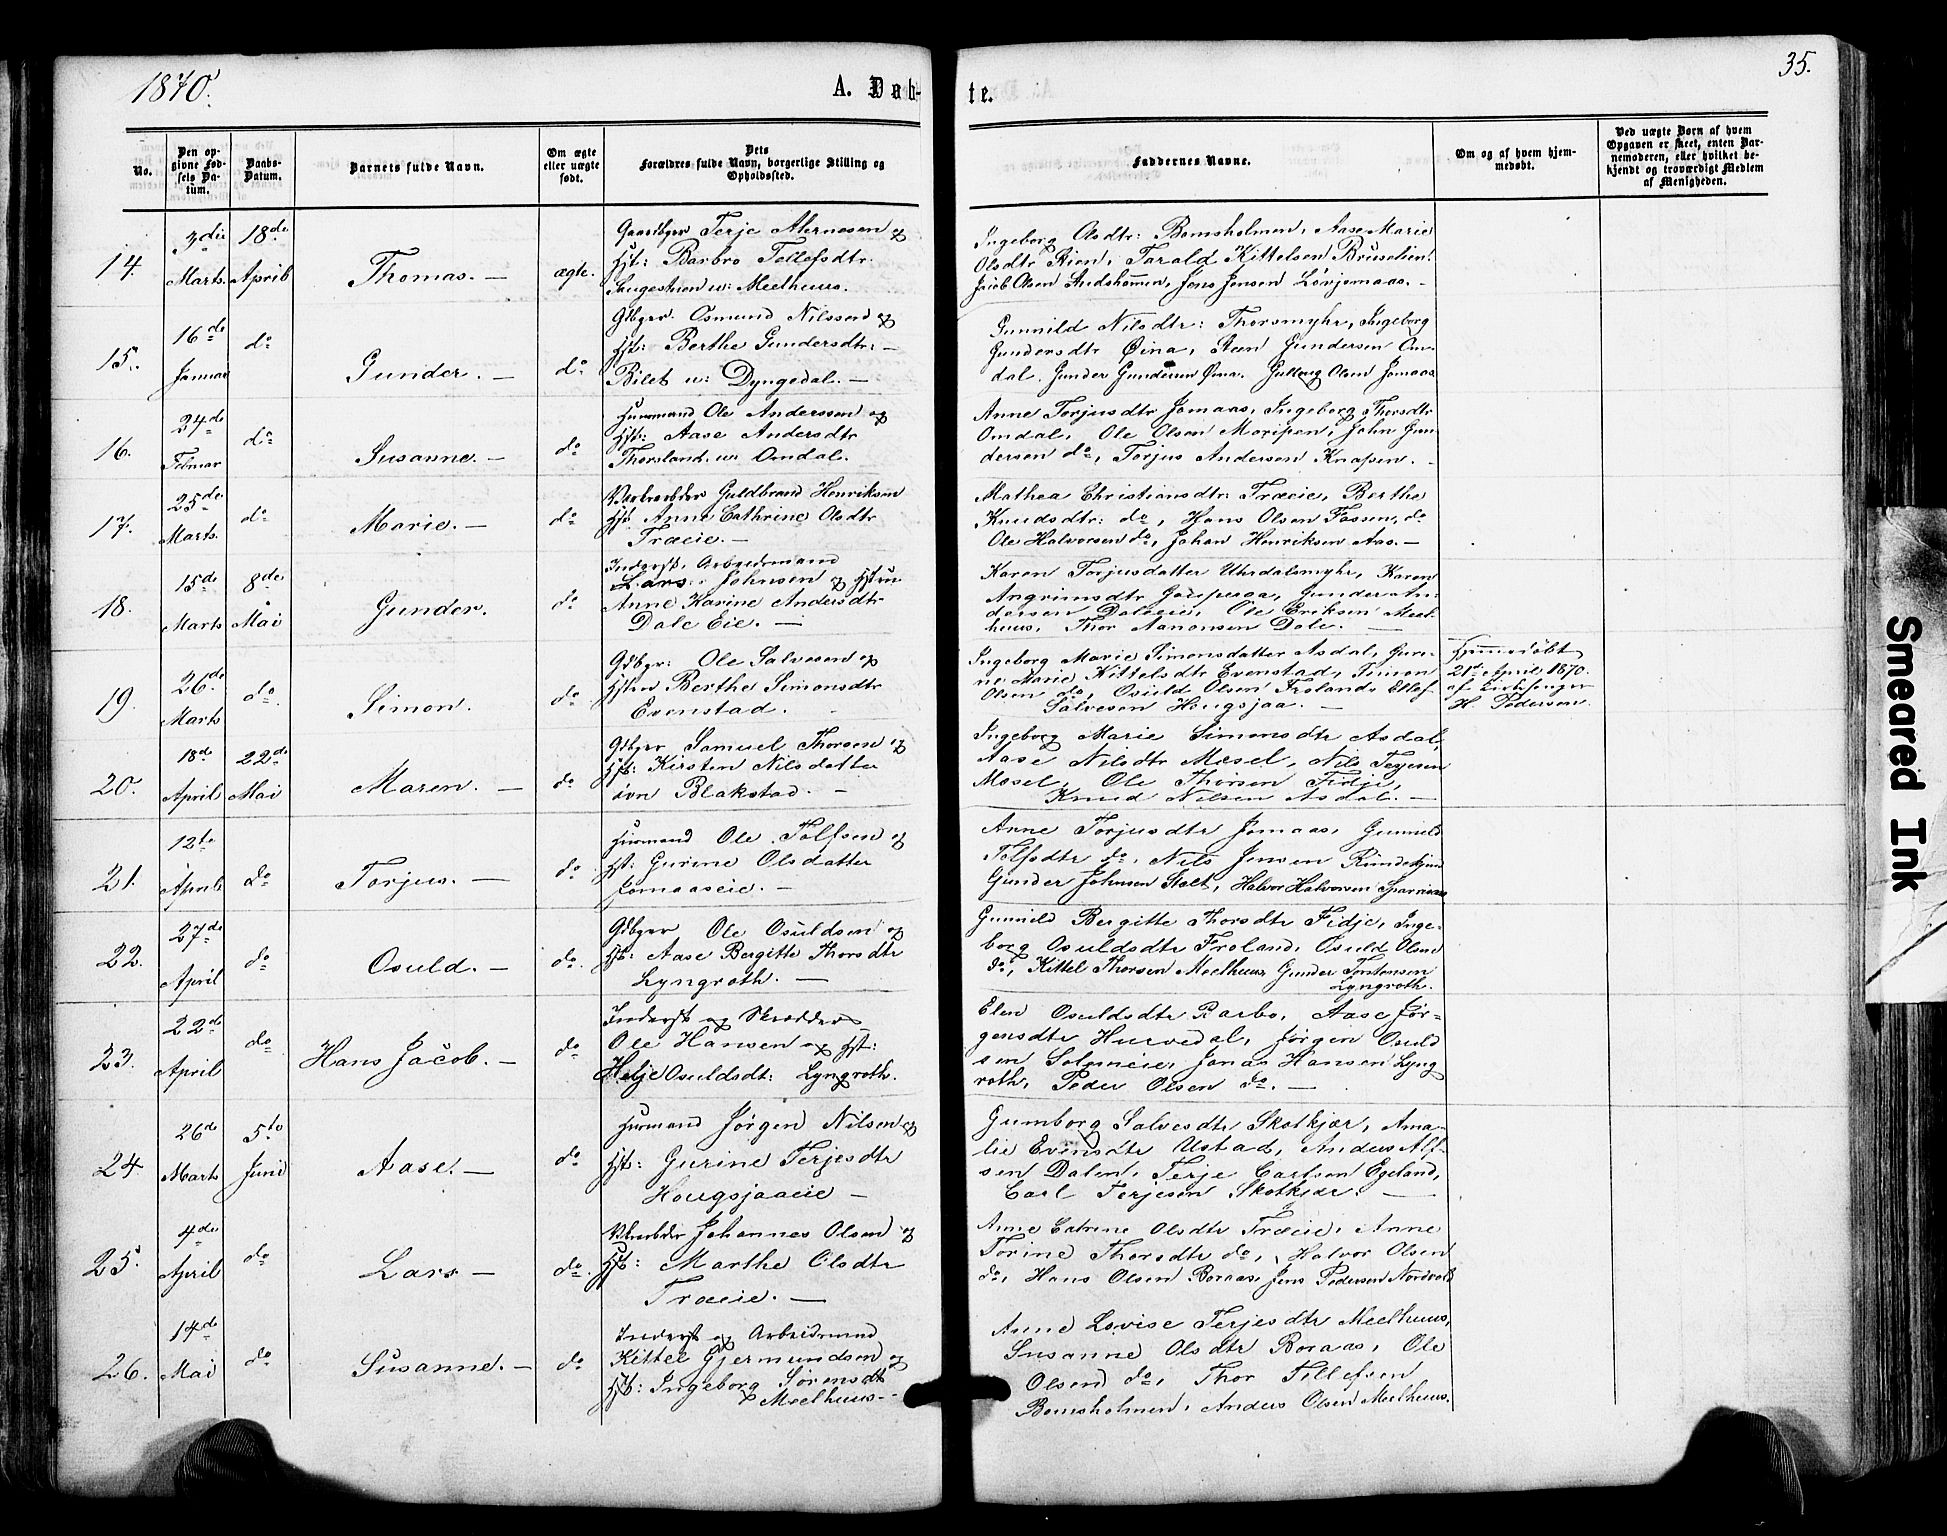 1870.
A. Døb-
te.
35.
No.
Den op-
givne Fød-
sels Da-
tum.
Daabs-
Datum.
Barnets fulde Navn.
Om ægte
eller uægte
født.
Dets
Forældres fulde Navn, borgerlige Stilling og
Opholdssted.
Faddernes Navne.
Om og af hvem hjem-
medøbt.
Ved uægte Børn af hvem
Opgaven er skeet, enten Bar-
nemoderen, eller hvilket be-
kjendt og troværdigt Medlem
af Menigheden.
14.
3die
Marts.
18de
April
Thomas. —
ægte.
Gaardbger Terje
og
Hst: Barbro Tellefsdtr.
Meelhuus.
Ingeborg Olsdtr: Bomsholmen, Aase Marie
Olsdtr Rien, Tarald Kittelsen
Jacob Olsen Jens Jensen
15.
16de
Januar
do
Gunder. —
do
Gdbger. Osmund Nilssen og
Hst: Berthe Gundersdtr: —
Bilet u: Dyngedal. —
Gunnild Nilsdtr: Thorsmyhr, Ingeborg
Gundersdtr Øina, Steen Gundersen Om-
dal. Gunder Gundersen Øina. Olsen Jomaas
16.
24de
Februar
do
Susanne. —
do
Husmand Ole Anderssen og
Hst: Aase Andersdtr
Thorsland u: Omdal.
Anne Torjusdtr Jomaas, Ingeborg Thorsdtr
Omdal, Ole Olsen Moripen, John Gun-
dersen do, Torjus Andersen Knapen. -
17.
25de
Marts.
do
Marie. —
do
Guldbrand Henriksen
Hst. Anne Cathrine Olsdtr
Træeie. —
Mathea Christiansdtr: Træeie, Berthe
Knudsdtr: do, Hans Olsen Fossen, do
Ole Halvorsen do, Johan Henriksen Aas. —
18.
15de
Marts
8de
Mai
Gunder.
do
Inderst, Arbeidsmand
Lars Johnsen og Hstru
Anne Karine Andersdtr
Dale Eie. —
Karen Torjusdatter Uhrdalsmyhr, Karen
Angrimsdtr Gunder An-
dersen Daleeie, Ole Eriksen Meel-
huus, Thor Aanonsen Dale. —
19.
26de
Marts
do
Simon.
do
Gdbgr: Ole Salvesen og
Hstru Berthe Simonsdtr
Evenstad.
Ingeborg Marie Simonsdatter Asdal, Guri-
ne Marie Kittelsdtr Evenstad, Simon
Olsen do, Osuld Olsen Froland, Ellef
Salvesen Hougsjaa. —
Hjemmedøbt
21de April 1870.
af Kirkesanger
H. Pedersen.
20.
18de
April
22de
Mai
Maren. —
do
Gdbger Samuel Thorsen og
Hst: Kirsten Nilsdatter
øvn Blakstad. -
Ingeborg Marie Simonsdtr Asdal,
Aase Nilsdtr Mosel, Nils Terjesen
Mosel, Ole Thorsen Fidje,
Knud Nilsen Asdal. —
21.
12te
April
do
Torjus. —
do
Husmand Ole Tolfsen og
Hst: Gurine Olsdatter
Jomaaseie. —
Anne Torjusdtr Jomaas, Gunnild
Tolfsdtr do, Nils Jensen
Gunder Johnsen Stolt, Halvor Halvorsen
22.
27de
April
do
Osuld. —
do.
Gdbger Ole Osuldsen og
Hst: Aase Bergitte Thorsdtr
Lyngroth. —
Gunnild Bergitte Thorsdtr Fidje, Inge-
borg Osuldsdtr Froland, Osuld Olsen
do, Kittel Thorsen Meelhuus, Gunder Torstensen
Lyngroth.
23.
22de
April
do
Hans Jacob. —
do
Inderst og Skrædder
Ole Hansen og Hst:
Helje Osuldsdt: Lyngroth.
Elen Osuldsdtr Rasbo, Aase Jør-
gensdtr Hurvedal, Jørgen Osuld
sen Jonas Hansen Lyng
roth, Peder Olsen do. —
24
26de
Marts
5te
Juni
Aase. —
do
Husmand Jørgen Nilsen og
Hst: Gurine Terjesdtr
Hougsjaaeie —
Gumborg Salvesdtr Skotkjær, Ama-
lie Evensdtr Ustad, Anders Alf-
sen Dalen, Terje Carlsen Egeland,
Carl Terjesen Skotkjær. —
25.
4de
April
do
Lars —
do.
Johannes Olsen og
Hst: Marthe Olsdtr
Træeie. —
Anne Catrine Olsdtr Træeie, Anne
Torine Thorsdtr do, Halvor Olsen
do, Hans Olsen Boraas, Jens Pedersen Nordvold
26.
14de
Mai
do
Susanne. —
do
Inderst og Arbeidsmand
Kittel Gjermundsen og
Hst: Ingeborg Sørensdt
Meelhuus. -
Anne Lovise Terjesdtr Meelhuus,
Susanne Olsdtr Boraas, Ole
Olsen do, Thor Tellefsen
Bomsholmen, Anders Olsen Meelhuus.
Smeared Ink